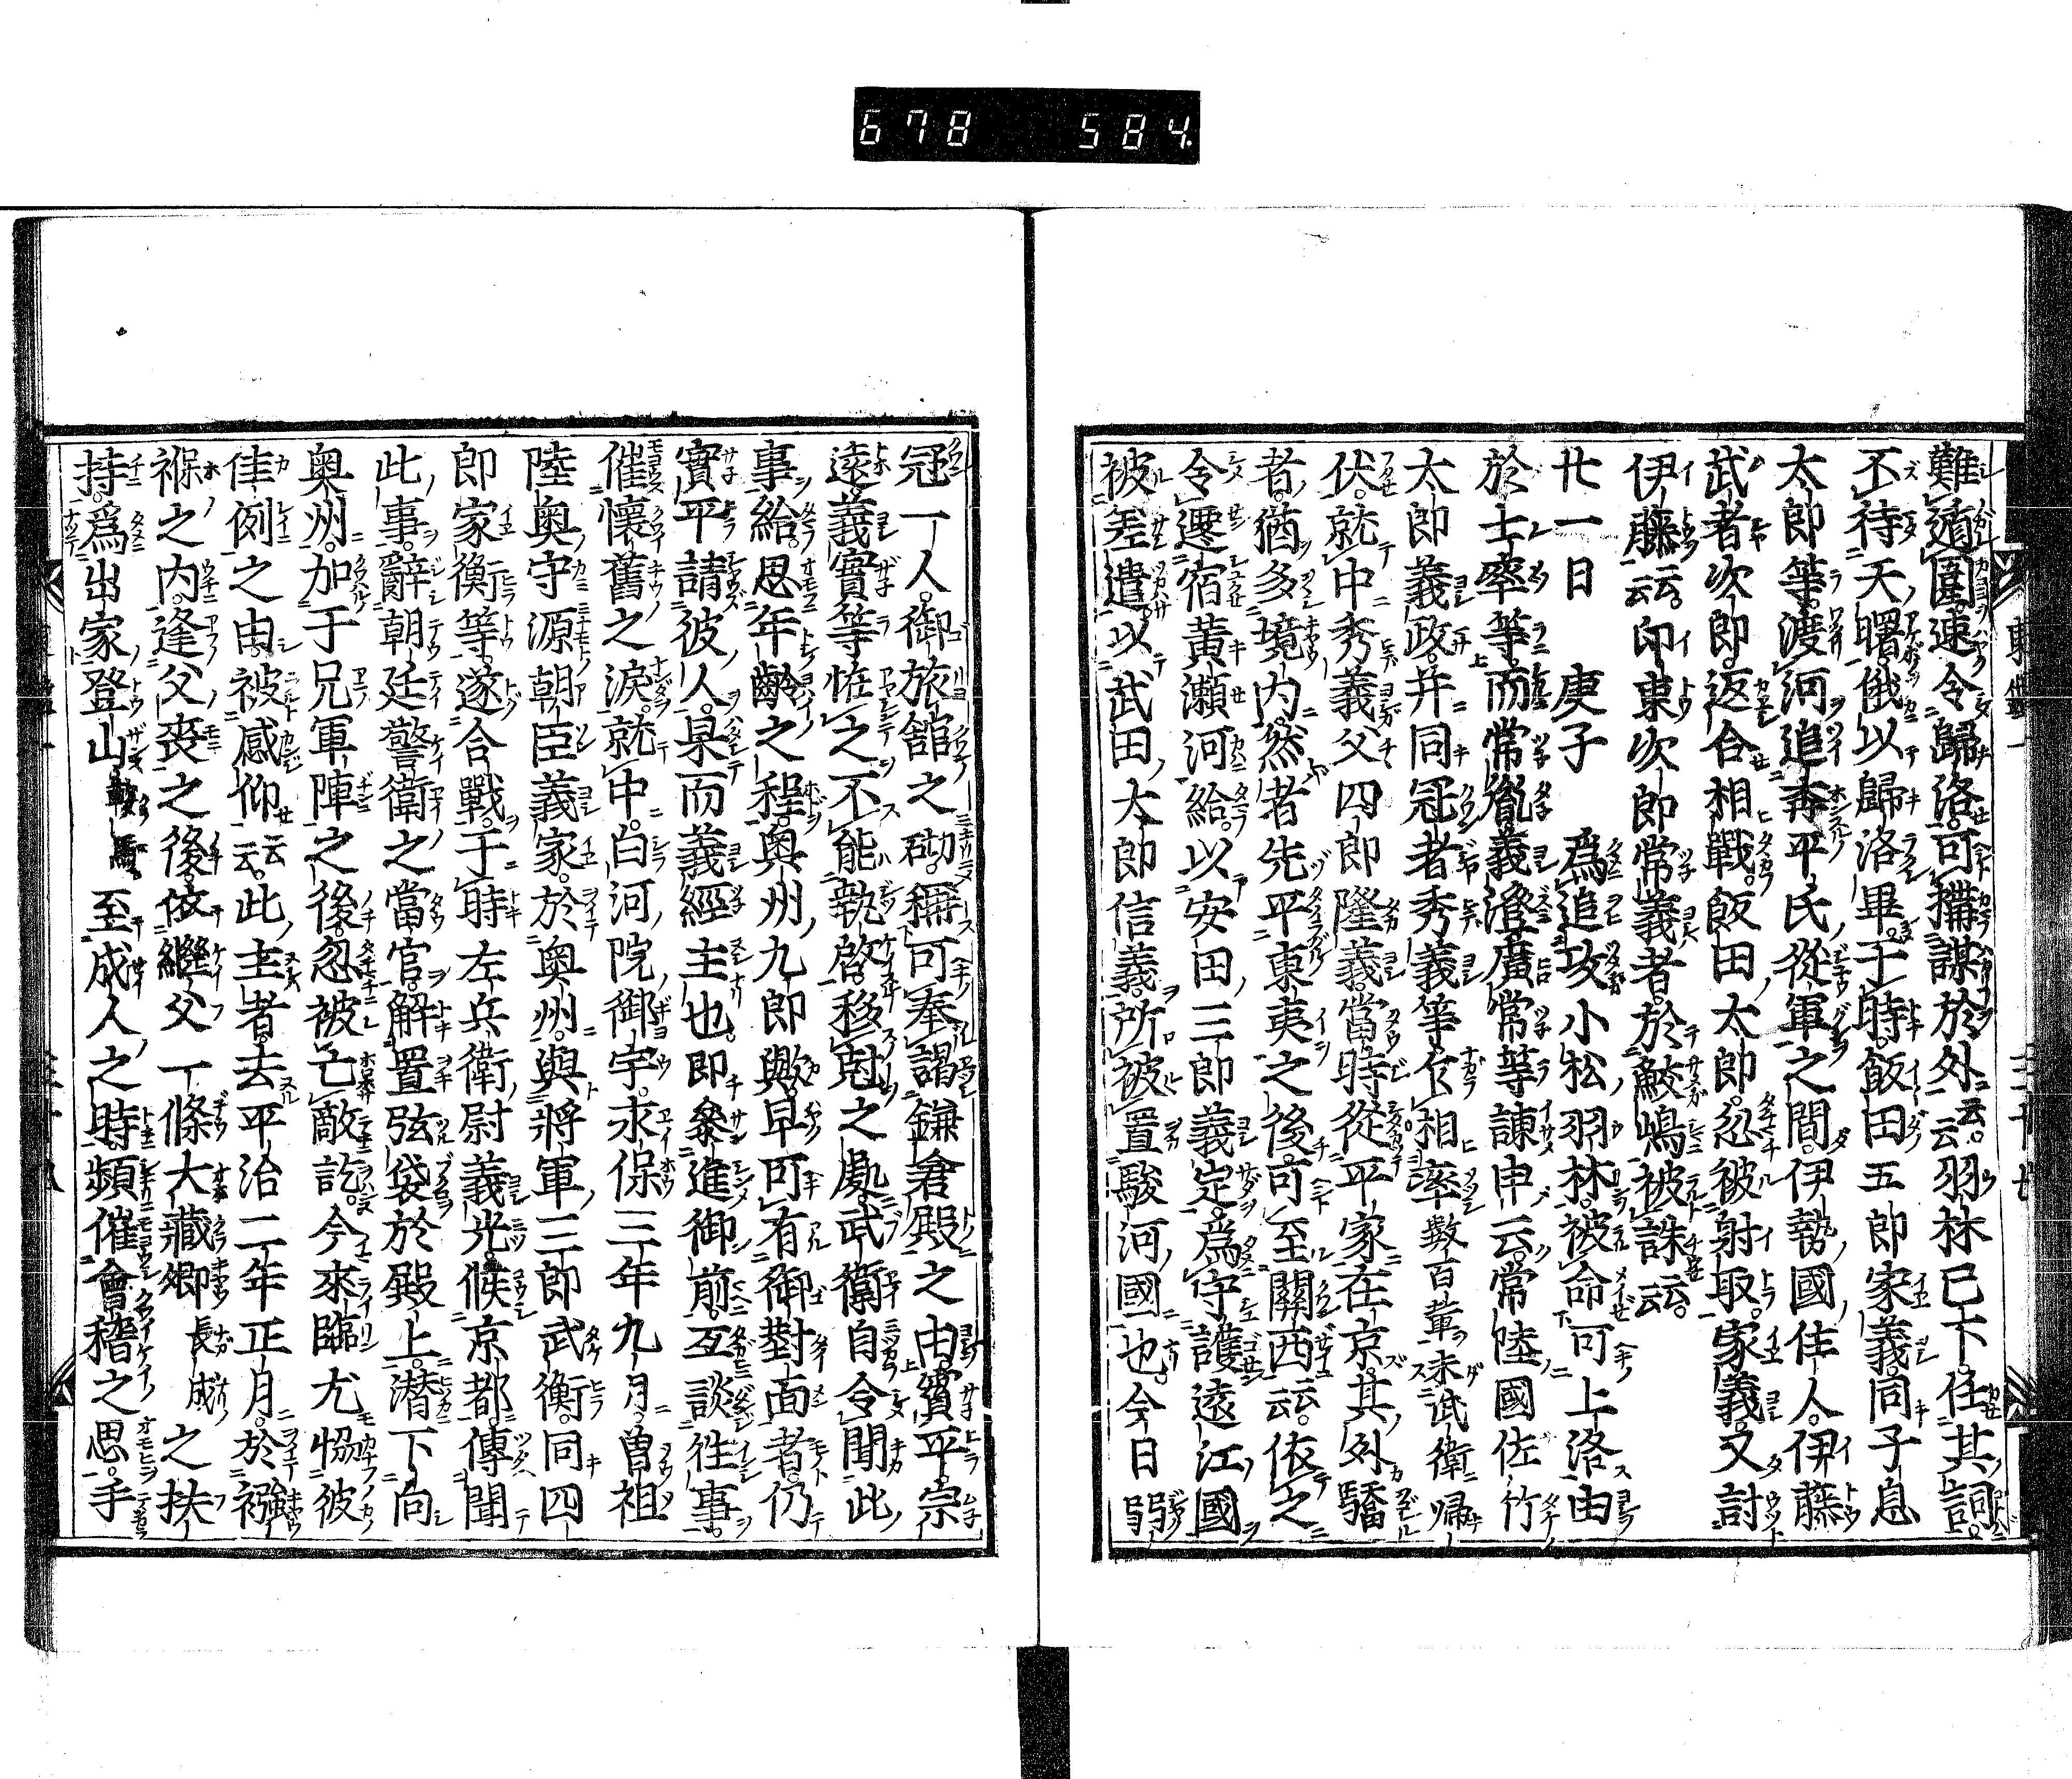 678 584.
難遁圍速令歸洛可搆謀於外云云羽林已下任其詞
不待天曙俄以歸洛畢于時飯田五郎家義同子息
太郎等渡河追奔平氏從軍之間伊勢國住人伊藤
武者次郎返合相戰飯田太郎忽被射取家義又討
伊藤云云印東次郎常義者於鮫嶋被誅云云
廿一日 庚子 爲追攻小松羽林被命可上洛由
於士率等而常胤義澄廣常等諫申云常陸國佐竹
太郎義政并同冠者秀義等乍相率數百輩未武衛歸
伏就中秀義父四郎隆義當時從平家在京其外驕
者猶多境內然者先平東夷之後可至關西云云依之
令遷宿黃瀨河給以安田三郎義定爲守護遠江國
被差遣以武田太郎信義所被置駿河國也今日弱
冠一人御旅舘之砌稱可奉謁鎌倉殿之由實平宗
遠義實等恠之不能執啓移尅之處武衛自令聞此
事給思年齡之程奥州九郎歟早可有御對面者仍
實平請彼人果而義經主也即參進御前互談往事
催懷舊之淚就中白河院御宇永保三年九月曽祖
陸奥守源朝臣義家於奥州與將軍三郎武衡同四
郎家衡等遂合戰于時左兵衛尉義光候京都傳聞
此事辭朝廷警衛之當官解置弦袋於殿上潛下向
奥州加于兄軍陣之後忽被亡敵訖今來臨尤恊彼
佳例之由被感仰云云此主者去平治二年正月於襁
褓之內逢父喪之後依繼父一條大藏卿長成之扶
持爲出家登山鞍馬至成人之時頻催會稽之思手